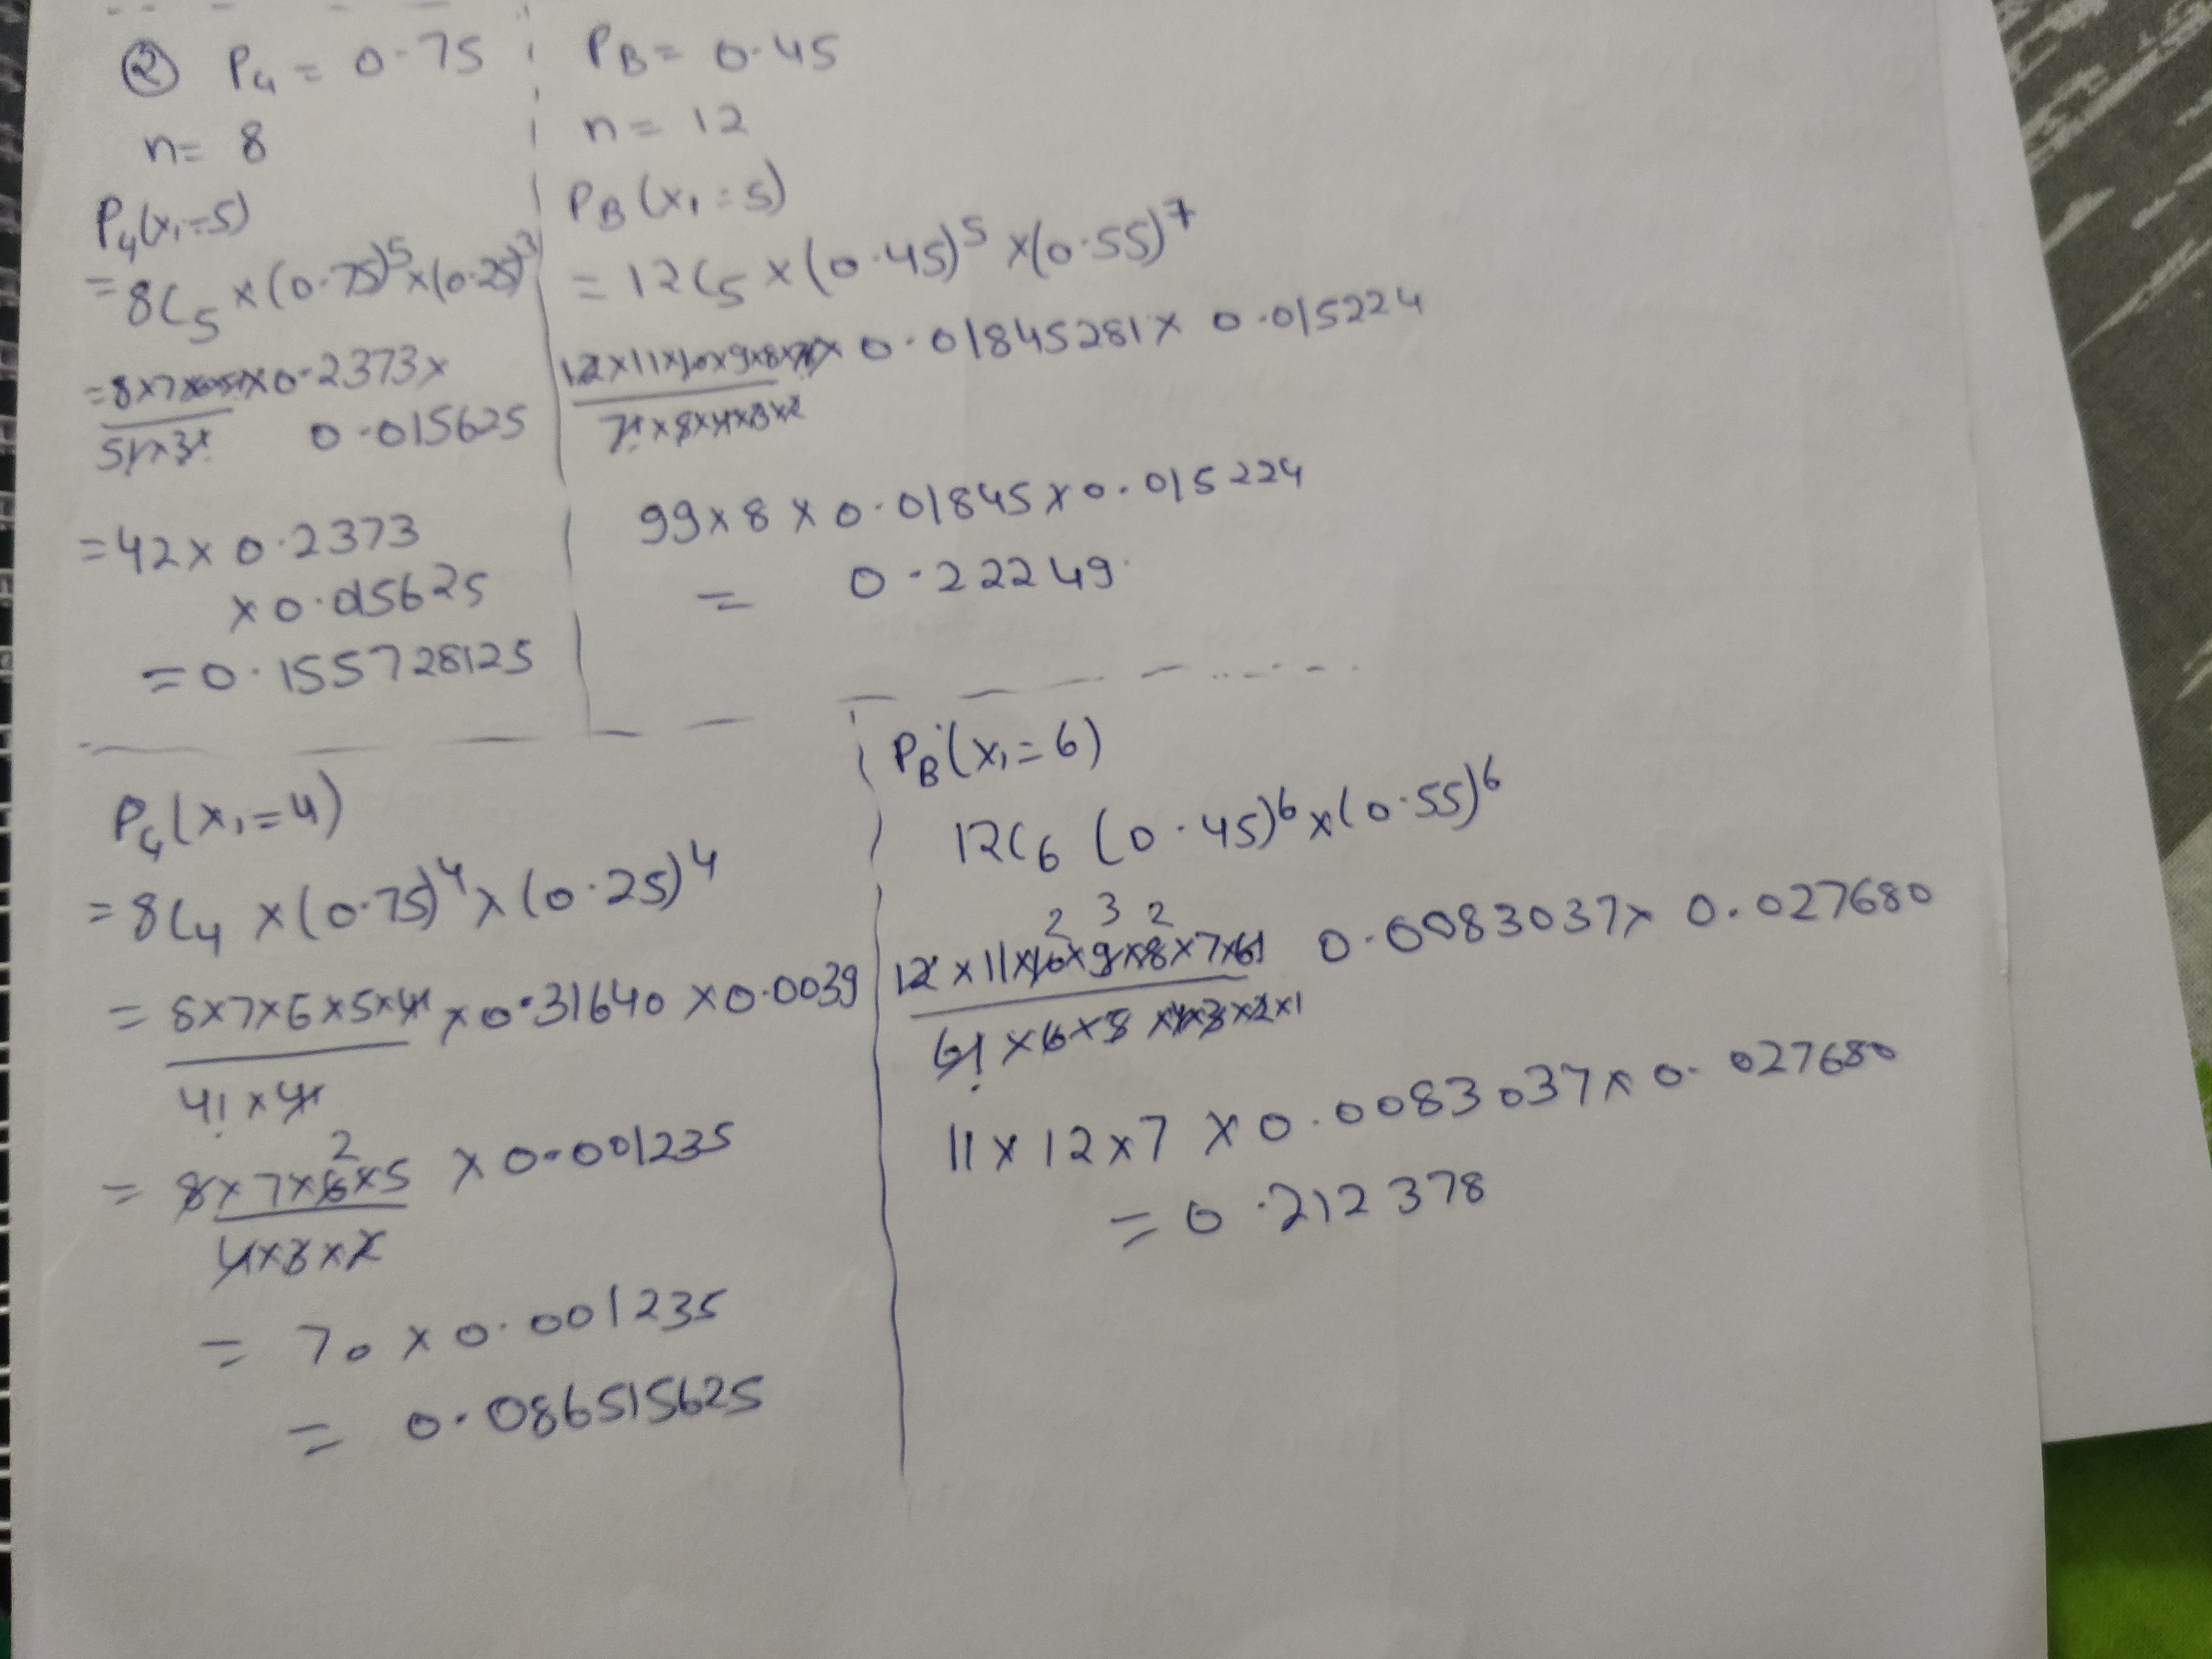 ② P₄ = 0.75
n= 8
P₄(x₁=5)
= 8C₅ × (0.75)⁵ × (0.25)³
= 8×7×6×5! × 0.2373 ×
5! × 3! 0.015625
= 42 × 0.2373
× 0.015625
= 0.155728125
P_B = 0.45
n = 12
P_B (x₁ = 5)
= 12C₅ × (0.45)⁵ × (0.55)⁷
12×11×10×9×8×7! × 0.01845281 × 0.015224
7! × 5×4×3×2
99 × 8 × 0.01845 × 0.015224
= 0.22249
P₄(x₁=4)
= 8C₄ × (0.75)⁴ × (0.25)⁴
= 8×7×6×5×4! × 0.31640 × 0.0039
4! × 4!
= 8×7×6×5 × 0.001235
2
4×3×2
= 70 × 0.001235
= 0.086515625
P_B(x₁=6)
12C₆ (0.45)⁶ × (0.55)⁶
2 3 2
12 × 11×10×9×8×7×6! 0.0083037 × 0.027680
6! × 6×5×4×3×2×1
11 × 12 × 7 × 0.0083037 × 0.027680
= 0.212378